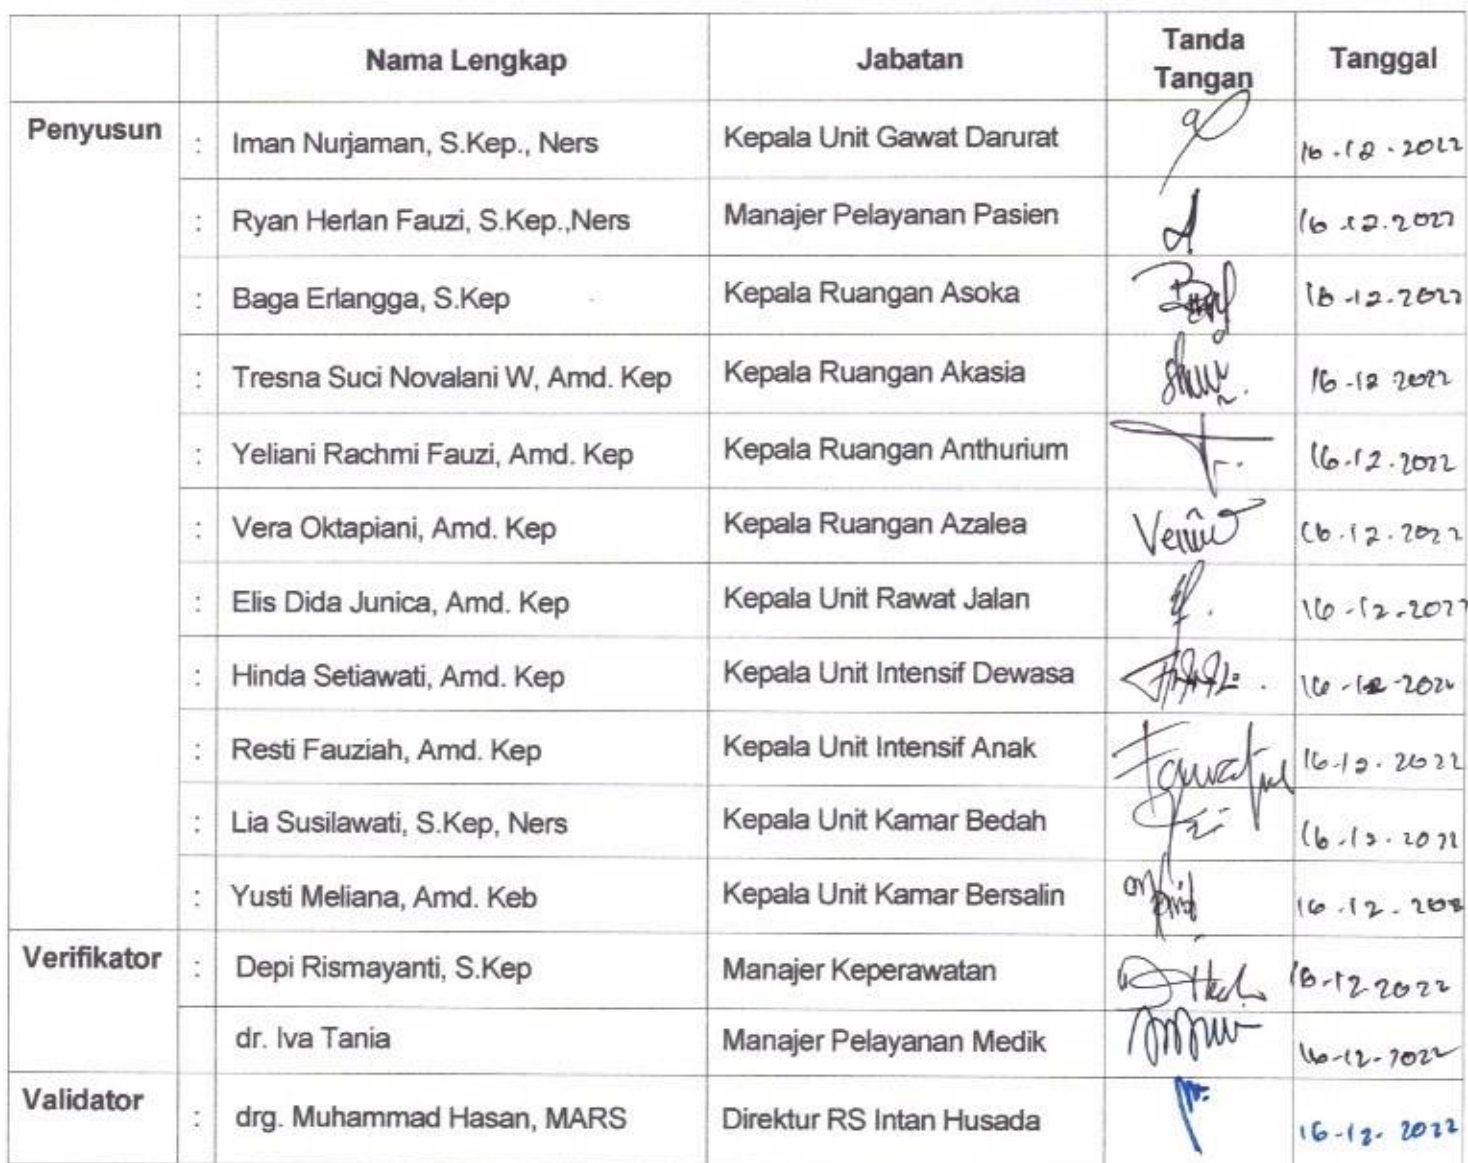 Nama Lengkap Jabatan Tanda Tangan Tanggal
Penyusun : Iman Nurjaman, S.Kep., Ners Kepala Unit Gawat Darurat 16.12.2022
: Ryan Herlan Fauzi, S.Kep.,Ners Manajer Pelayanan Pasien 16.12.2022
: Baga Erlangga, S.Kep Kepala Ruangan Asoka 16-12-2022
: Tresna Suci Novalani W, Amd. Kep Kepala Ruangan Akasia 16-12 2022
: Yeliani Rachmi Fauzi, Amd. Kep Kepala Ruangan Anthurium 16.12.2022
: Vera Oktapiani, Amd. Kep Kepala Ruangan Azalea 16.12.2022
: Elis Dida Junica, Amd. Kep Kepala Unit Rawat Jalan 16-12-2022
: Hinda Setiawati, Amd. Kep Kepala Unit Intensif Dewasa 16-12-2022
: Resti Fauziah, Amd. Kep Kepala Unit Intensif Anak 16-12-2022
: Lia Susilawati, S.Kep, Ners Kepala Unit Kamar Bedah 16-12-2022
: Yusti Meliana, Amd. Keb Kepala Unit Kamar Bersalin 16.12.
Verifikator : Depi Rismayanti, S.Kep Manajer Keperawatan 16-12-2022
dr. Iva Tania Manajer Pelayanan Medik 16-12-2022
Validator : drg. Muhammad Hasan, MARS Direktur RS Intan Husada 16-12-2022